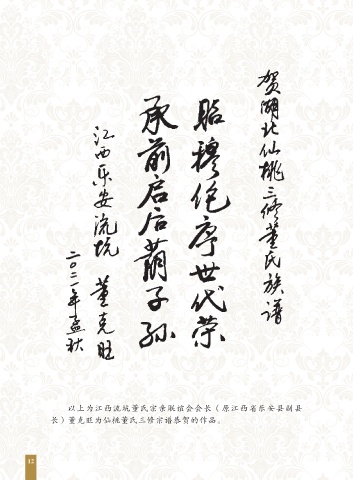 贺湖北仙桃三修董氏族谱
昭穆伦序世代荣
承前启后荫子孙
江西乐安流坑 董克旺
二〇二一年孟秋
以上为江西流坑董氏宗亲联谊会会长（原江西省乐安县副县
长）董克旺为仙桃董氏三修宗谱恭贺的作品。
12